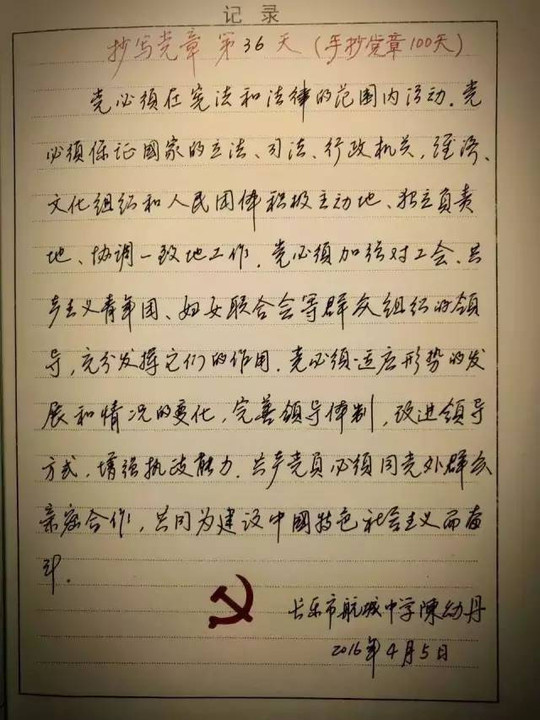 记录
抄写党章 第36天 (手抄党章100天)
党必须在宪法和法律的范围内活动.党
必须保证国家的立法、司法、行政机关,经济、
文化组织和人民团体积极主动地、独立负责
地、协调一致地工作.党必须加强对工会、共
产主义青年团、妇女联合会等群众组织的领
导,充分发挥它们的作用.党必须适应形势的发
展和情况的变化,完善领导体制,改进领导
方式,增强执政能力.共产党员必须同党外群众
亲密合作,共同为建设中國特色社会主义而奋
斗.
长乐市航城中学陳幼丹
2016年4月5日